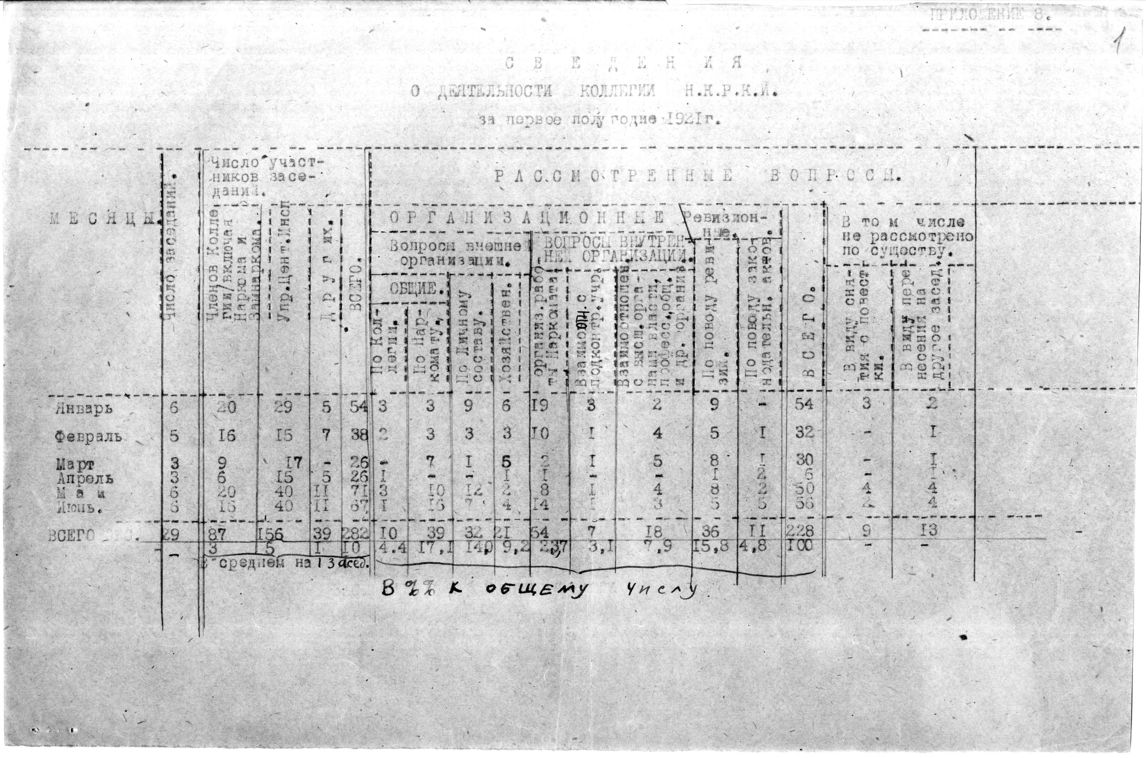 ПРИЛОЖЕНИЕ 8.
1
СВЕДЕНИЯ
О ДЕЯТЕЛЬНОСТИ КОЛЛЕГИИ Н.К.Р.К.И.
за первое полугодие 1921г.
МЕСЯЦЫ.
Число заседаний.
Число участ-
ников засе-
даний.
Членов Колле
гии, включая
Наркома и
Замнаркома.
Упр.Цент.Инсп
Других.
ВСЕГО.
РАССМОТРЕННЫЕ ВОПРОСЫ.
ОРГАНИЗАЦИОННЫЕ
Ревизион-
ные.
Вопросы внешне
организации.
ВОПРОСЫ ВНУТРЕН-
НЕЙ ОРГАНИЗАЦИИ.
ОБЩИЕ.
По Кол-
легии.
По Нар-
комату.
По Личному
составу.
Хозяйствен.
организ.рабо
ты Наркомата
Взаимоотн. с
подконтр.учр.
Взаимоотношен.
с высш. орга-
нами власти,
професс., общ.
и др. организ
По поводу реви-
зий.
По поводу зако
нодательн. актов.
ВСЕГО.
В том числе
не рассмотрено
по существу.
В виду сня-
тия с повест
ки.
В виду пере
несения на
другое засед.
Январь 6 20 29 5 54 3 3 9 6 19 3 2 9 - 54 3 2
Февраль 5 16 15 7 38 2 3 3 3 10 1 4 5 1 32 - 1
Март 3 9 17 - 26 - 7 1 5 2 1 5 8 1 30 - 1
Апрель 3 6 15 5 26 1 - - 1 1 - - 1 2 6 - 1
Май 6 20 40 11 71 3 10 12 2 8 1 4 8 2 50 4 4
Июнь. 6 16 40 11 67 1 16 7 4 14 1 3 5 5 56 2 4
ВСЕГО 29 87 156 39 282 10 39 32 21 54 7 18 36 11 228 9 13
- 3 5 1 10 4.4 17,1 14,0 9,2 23,7 3,1 7,9 15,8 4,8 100 - -
В среднем на 1 засед.
В %% к общему числу